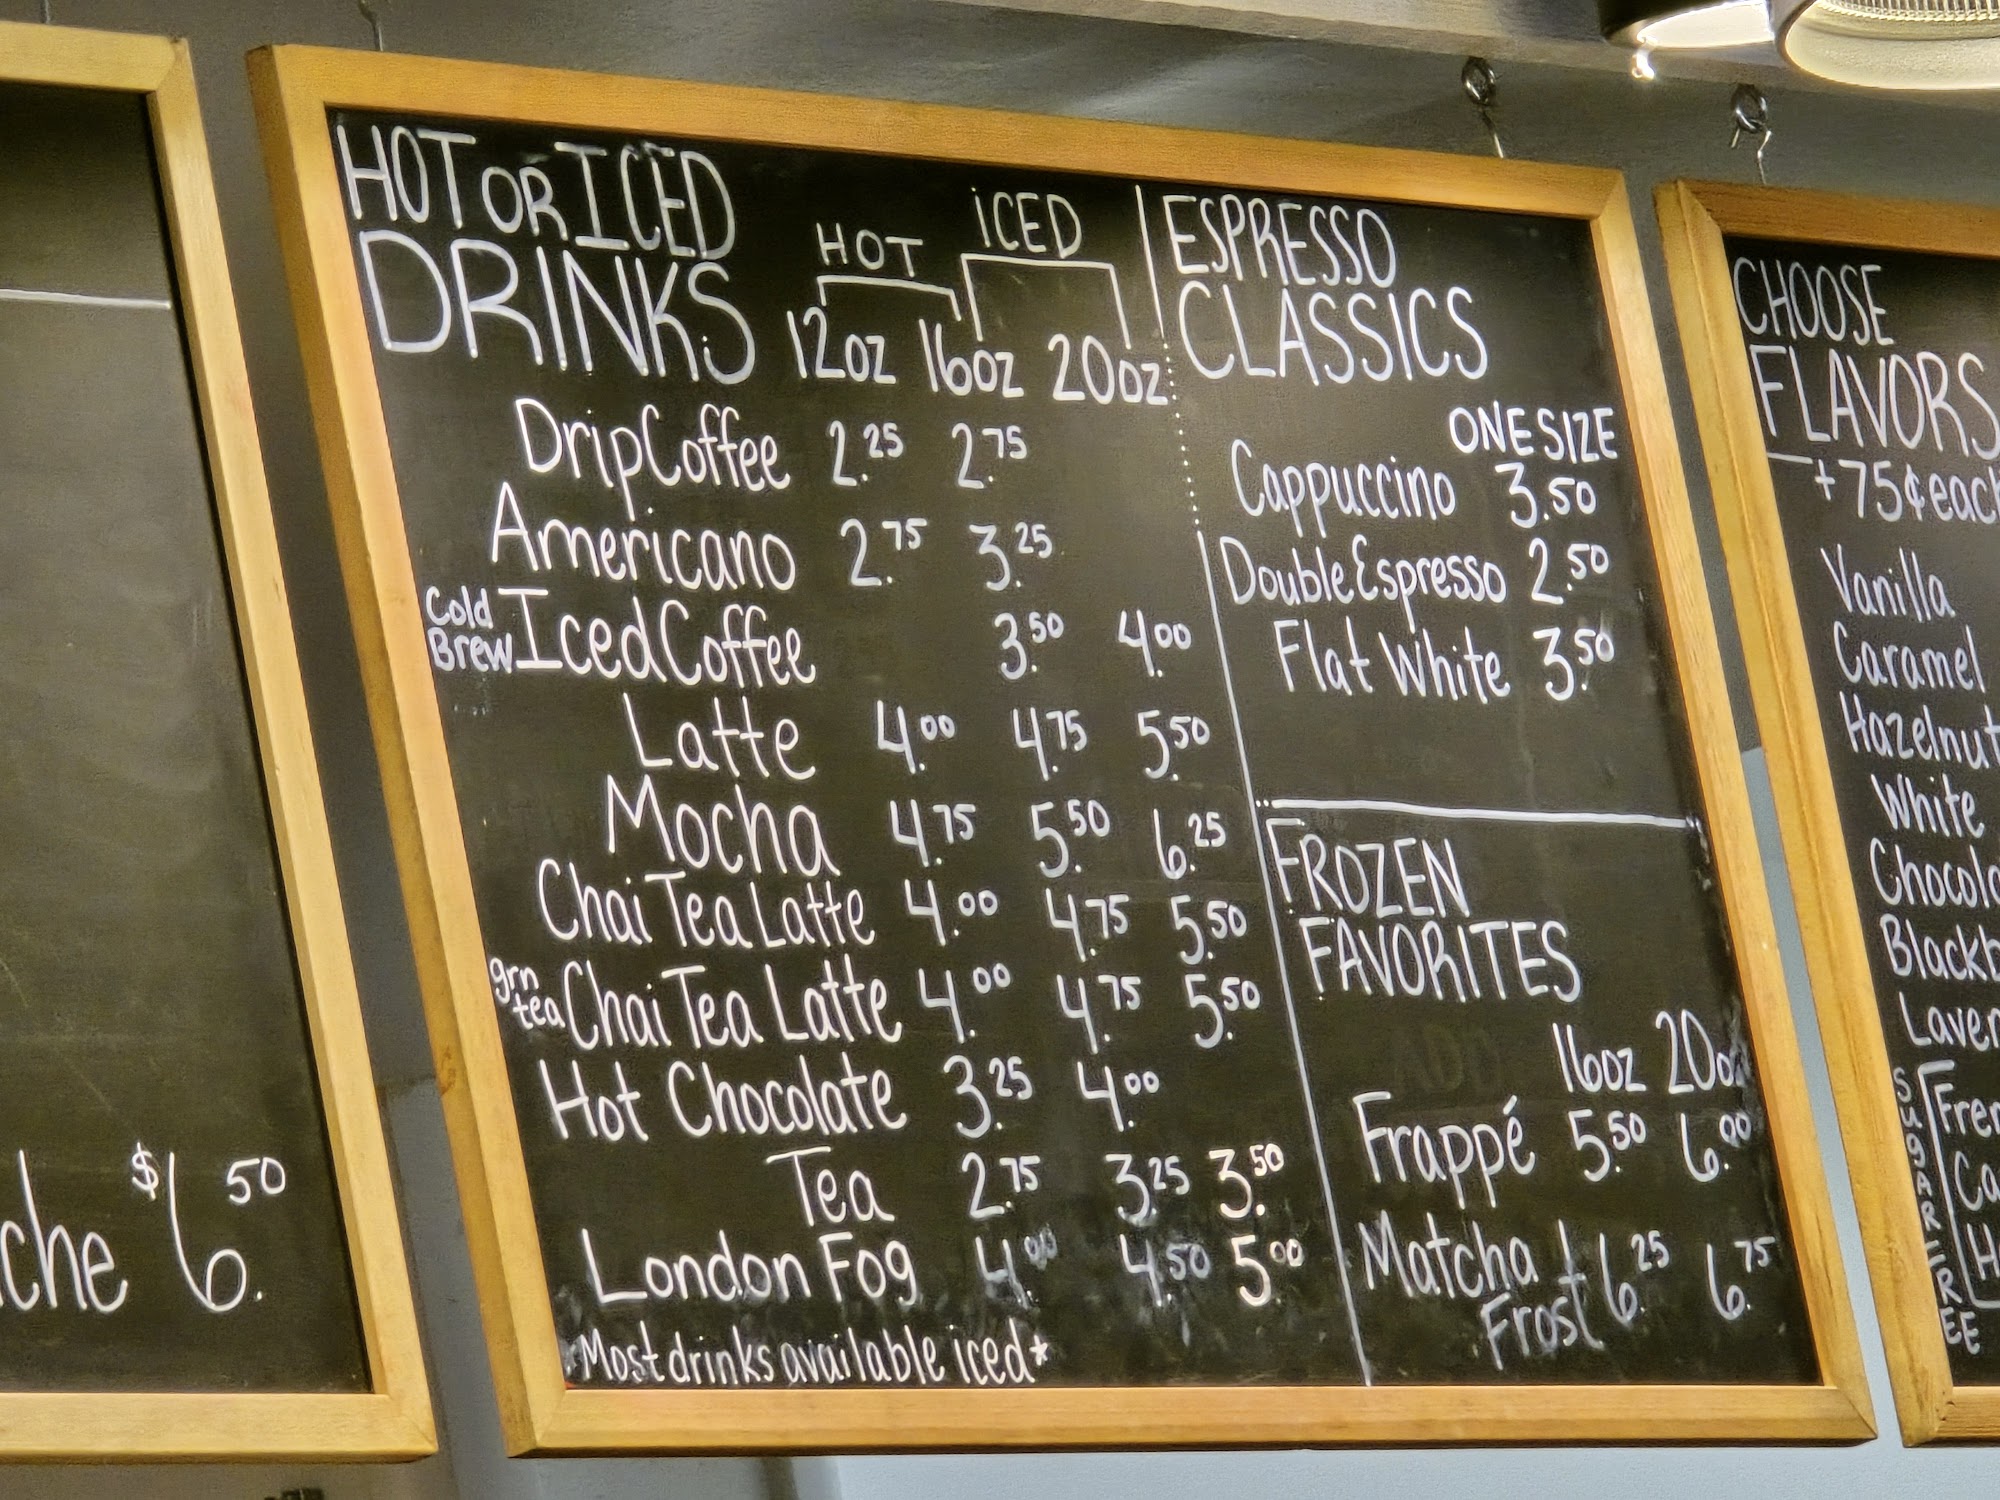 $6.50
HOT OR ICED
DRINKS
HOT ICED
12oz 16oz 20oz
Drip Coffee 2.25 2.75
Americano 2.75 3.25
Cold Brew Iced Coffee 3.50 4.00
Latte 4.00 4.75 5.50
Mocha 4.75 5.50 6.25
Chai Tea Latte 4.00 4.75 5.50
grn tea Chai Tea Latte 4.00 4.75 5.50
Hot Chocolate 3.25 4.00
Tea 2.75 3.25 3.50
London Fog 4.00 4.50 5.00
*Most drinks available iced*
ESPRESSO
CLASSICS
ONE SIZE
Cappuccino 3.50
Double Espresso 2.50
Flat White 3.50
FROZEN
FAVORITES
16oz 20oz
Frappé 5.50 6.00
Matcha 6.25 6.75
Frost
CHOOSE
FLAVORS
+75¢ each
Vanilla
Caramel
Hazelnut
White
SUGAR FREE